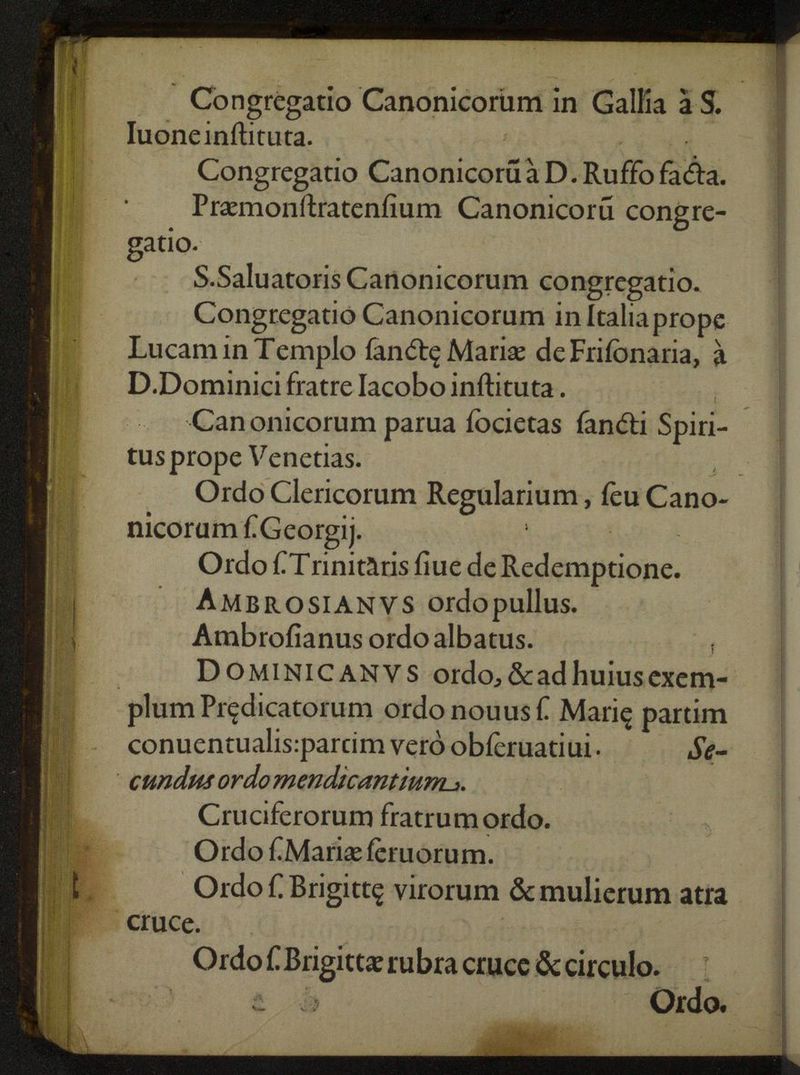 Congregatio Canonicorum in Gallia à S.
Iuone inſtituta.
Congregatio Canonicorũ à D. Ruffo facta.
Præmonſtratenſium Canonicorũ congre-
gatio.
S. Saluatoris Canonicorum congregatio.
Congregatio Canonicorum in Italia prope
Lucam in Templo ſanctę Mariæ de Friſonaria, à
D. Dominici fratre Iacobo inſtituta.
Canonicorum parua ſocietas ſancti Spiri-
tus prope Venetias.
Ordo Clericorum Regularium, ſeu Cano-
nicorum ſ. Georgij.
Ordo ſ. Trinitatis ſiue de Redemptione.
AMBROSIANVS ordo pullus.
Ambroſianus ordo albatus.
DOMINICANVS ordo, & ad huius exem-
plum Prędicatorum ordo nouus ſ. Marię partim
conuentualis: partim verò obſeruatiui. Se-
cundus ordo mendicantium.
Cruciferorum fratrum ordo.
Ordo ſ. Mariæ ſeruorum.
Ordo ſ. Brigittę virorum & mulierum atra
cruce.
Ordo ſ. Brigittæ rubra cruce & circulo.
Ordo.